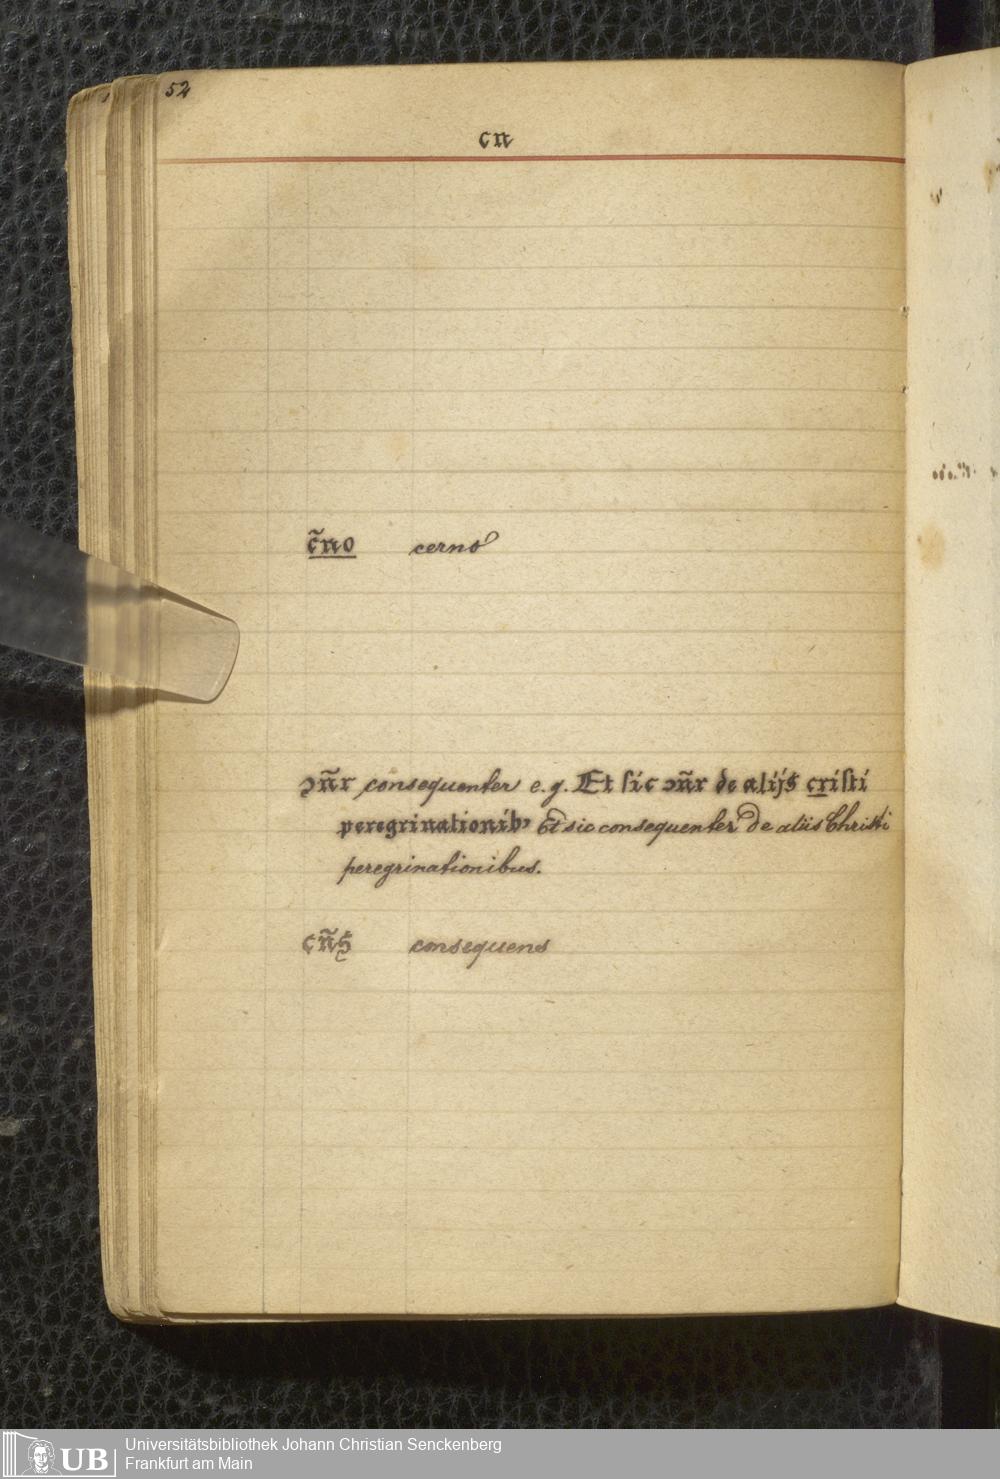 52
cn
c̃no cerno
ɔñr consequenter e.g. Et ſic ɔñr de alijs criſti
peregrinationibꝰ Et sic consequenter de aliis Christi
peregrinationibus.
cñs consequens
UB
Universitätsbibliothek Johann Christian Senckenberg
Frankfurt am Main